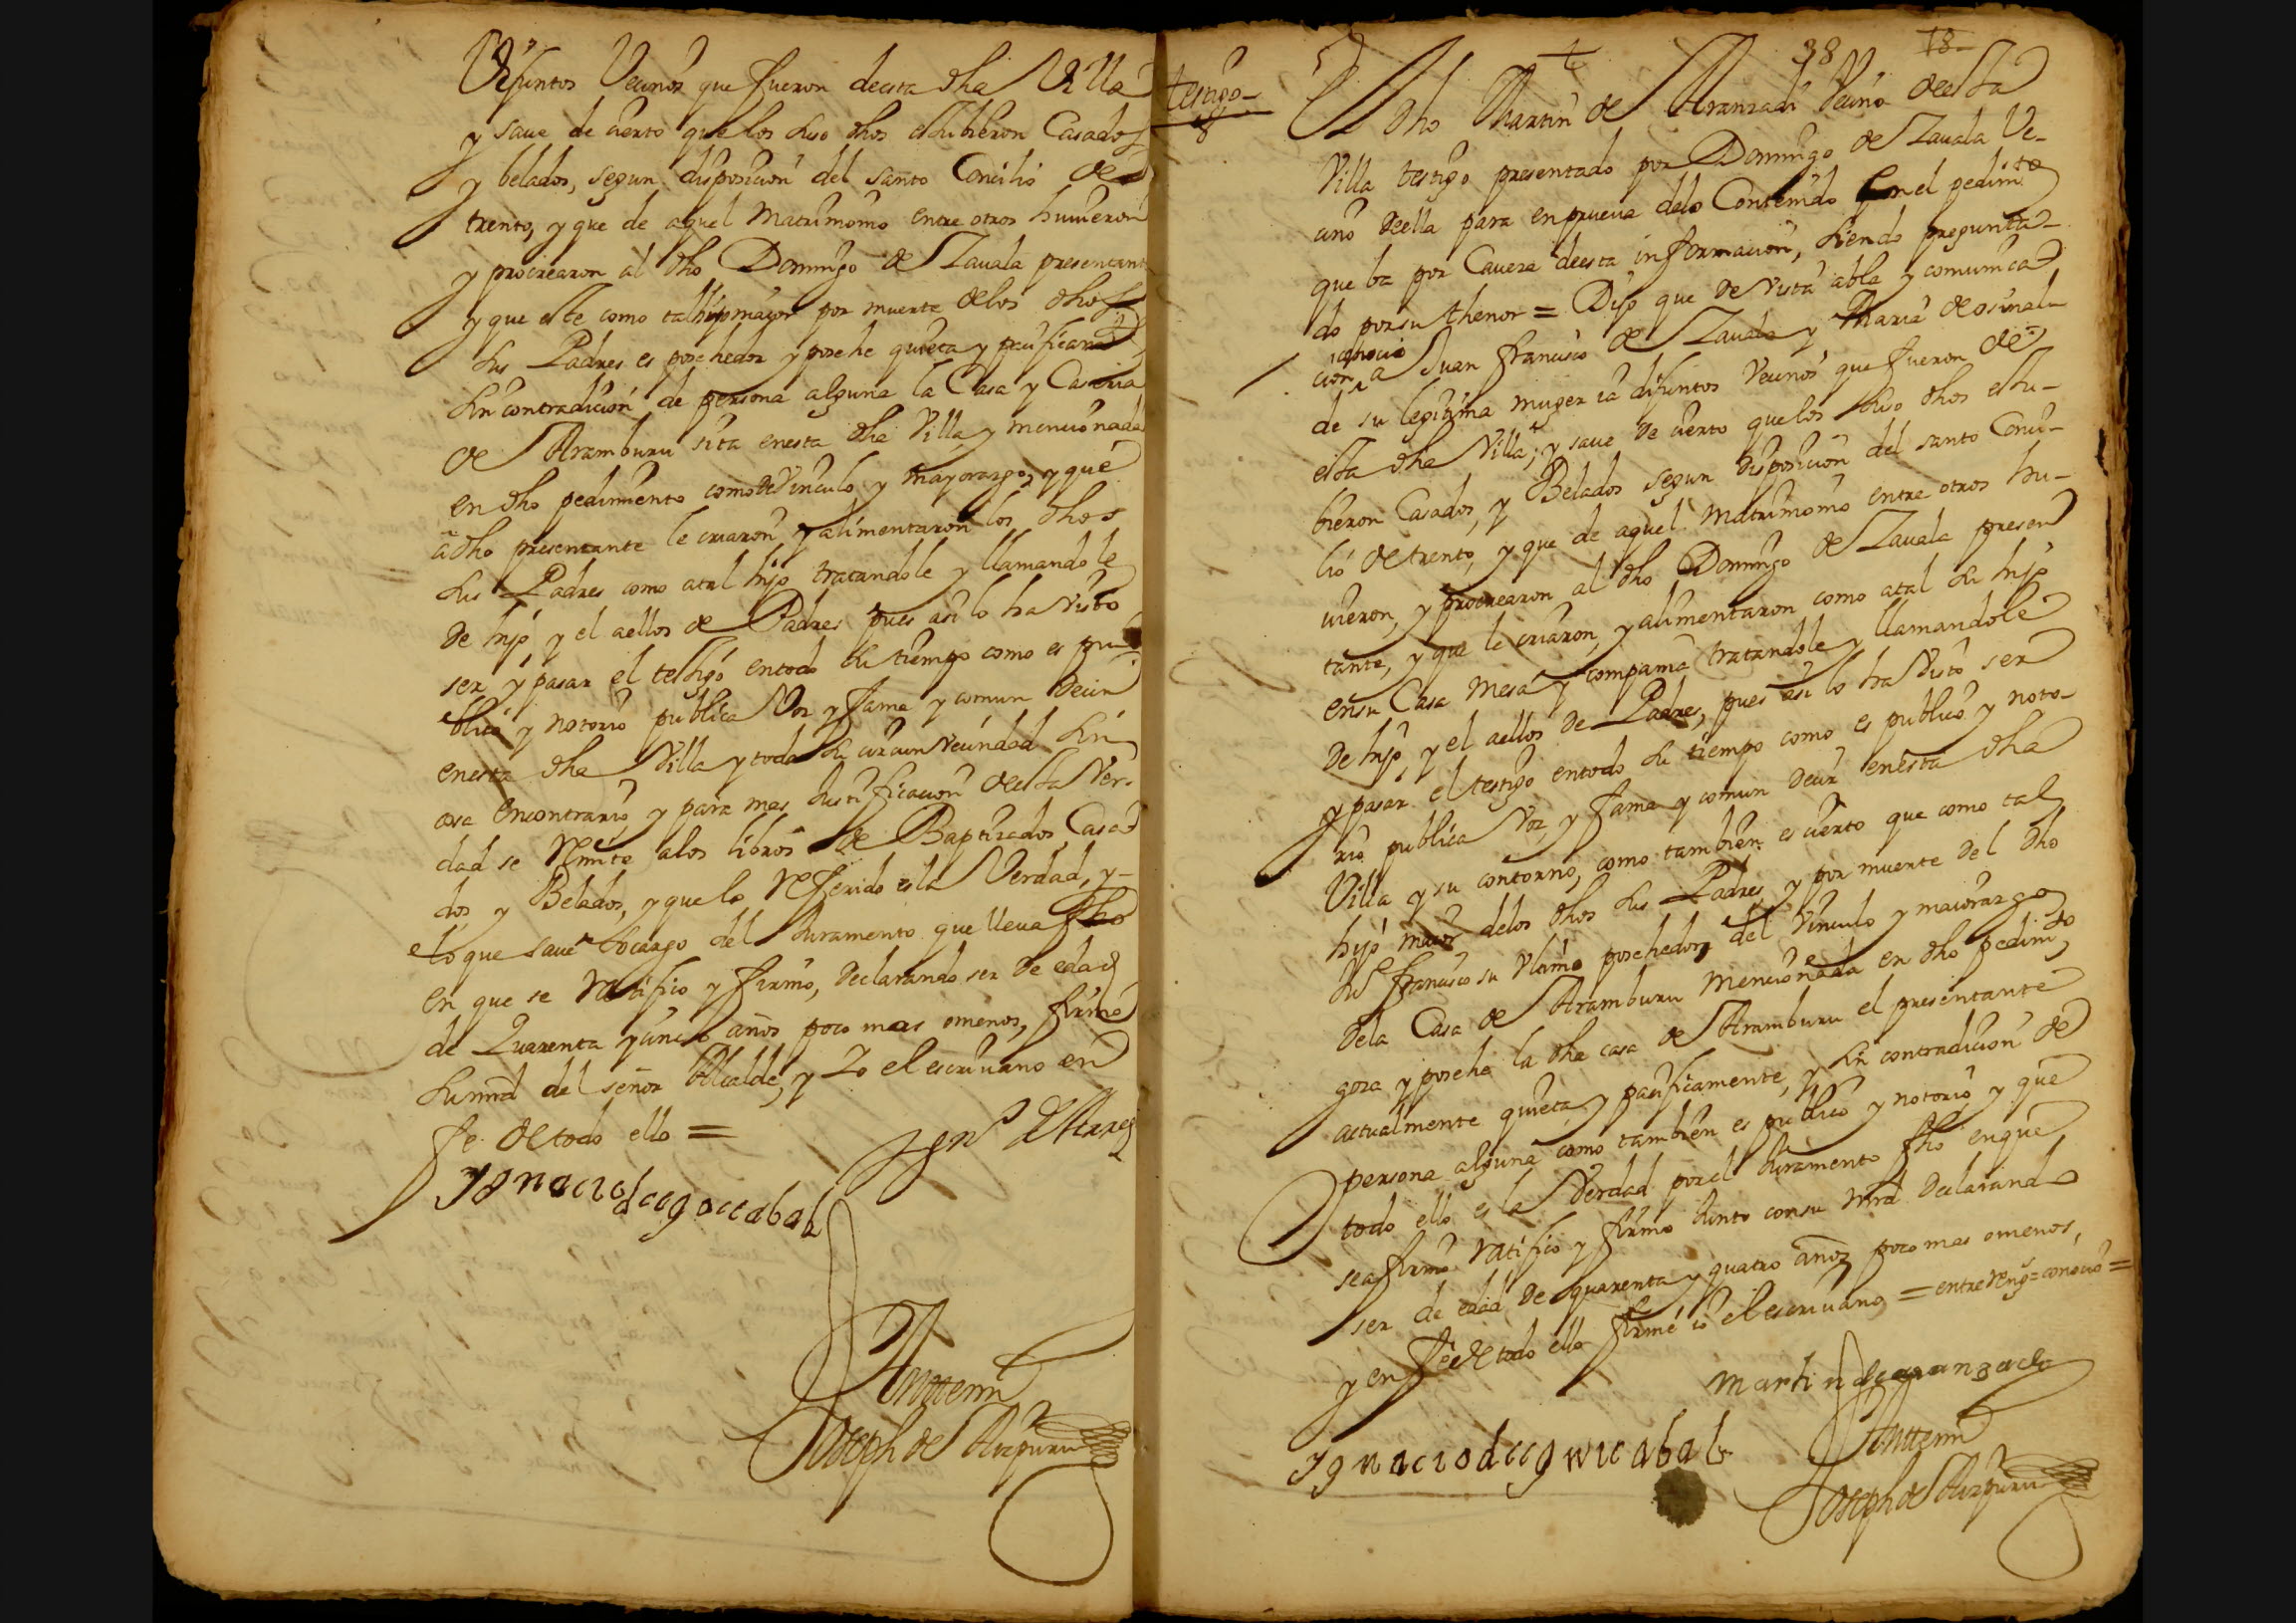 Difuntos Vecinos que fueron deesta dha Villa
y saue de cierto que los suso dhos estubieron Casados
y belados, segun disposicion del santo Concilio de
trento, y que de aquel Matrimonio entre otros huuieron
y procrearon al dho Domingo de Zauala presentante
y que este como tal hijo maior por muerte delos dhos
sus Padres es posehedor y posehe quieta y pacificamte
sin contradicion de persona alguna la Casa y Caseria
de Aramburu sita enesta dha Villa, y mencionada
en dho pedimiento como de Vinculo y Mayorazgo, y que
a dho presentante le criaron y alimentaron los dhos
sus Padres como atal hijo tratandole y llamandole
de hijo, y el aellos de Padres pues asi lo ha visto
ser y pasar el testigo entodo su tiempo como es pu-
blico y notorio publica Voz y fama y comun decir
enesta dha Villa y toda su circunvecindad sin
cosa encontrario, y para mas Justificacion deesta Ver-
dad se remite alos libros de Baptizados, Casa-
dos y Belados, y que lo referido es la Verdad, y
lo que saue socargo del Juramento que lleua fho
en que se ratifico y firmo, declarando ser de edad
de Quarenta y cinco años poco mas omenos, firmo
su mrd del señor Alcalde, y Yo el escriuano en
fe de todo ello =
Ygnacio de egoccabal
Antemi
Joseph de Aizpuru
testigo
8
38 18
El dho Martin de Aranzadi Vecino deesta
Villa testigo presentado por Domingo de Zauala Ve-
cino deella para enprueua delo Contenido en el pedimto
que ba por Cauera deesta informacion, siendo pregunta-
do por su thenor = Dijo que de vista abla y comunica-
conocio
cion a Juan francisco de Zauala y Maria de osinal-
de su legitima muger ia difuntos Vecinos que fueron de
esta dha Villa; y saue de cierto que los suso dhos estu-
bieron Casados, y Belados segun disposicion del santo Conci-
lio de trento, y que de aquel Matrimonio entre otros hu-
uieron, y procrearon al dho Domingo de Zauala presen
tante, y que le criaron, y alimentaron como atal su hijo
ensu Casa mesa y compania tratandole y llamandole
de hijo, y el aellos de Padres, pues asi lo ha visto ser
y pasar el testigo entodo su tiempo como es publico y noto-
rio publica Voz y fama y comun decir enesta dha
Villa y su contorno, como tambien es cierto que como tal
hijo maior delos dhos sus Padres, y por muerte del dho
Jun francisco su vltimo posehedor del Vinculo y maiorazgo
dela Casa de Aramburu mencionada en dho pedimto
goza y posehe la dha casa de Aramburu el presentante
actualmente quieta y pacificamente, y sin contradicion de
persona alguna como tambien es publico y notorio, y que
todo ello es la Verdad por el Juramento fho enque
se afirmo ratifico y firmo Junto consu mrd declarando
ser de edad de quarenta y quatro años poco mas omenos,
y en fee de todo ello firmé io el escriuano = entre reng = conocio =
Martin de aranzadi
Antemi
Joseph de Aizpuru